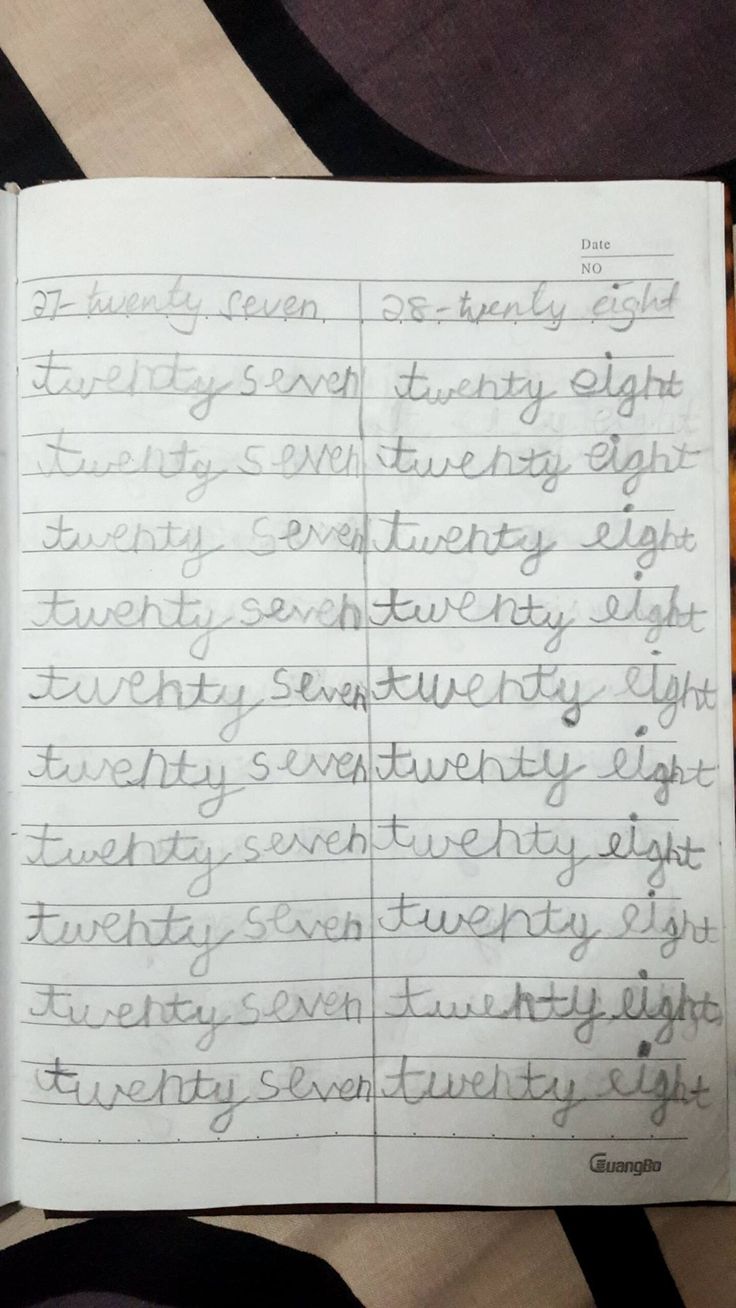 Date
NO
27-twenty seven 28-twenty eight
twenty seven twenty eight
twenty seven twenty eight
twenty seven twenty eight
twenty seven twenty eight
twenty seven twenty eight
twenty seven twenty eight
twenty seven twenty eight
twenty seven twenty eight
twenty seven twenty eight
twenty seven twenty eight
GuangBo